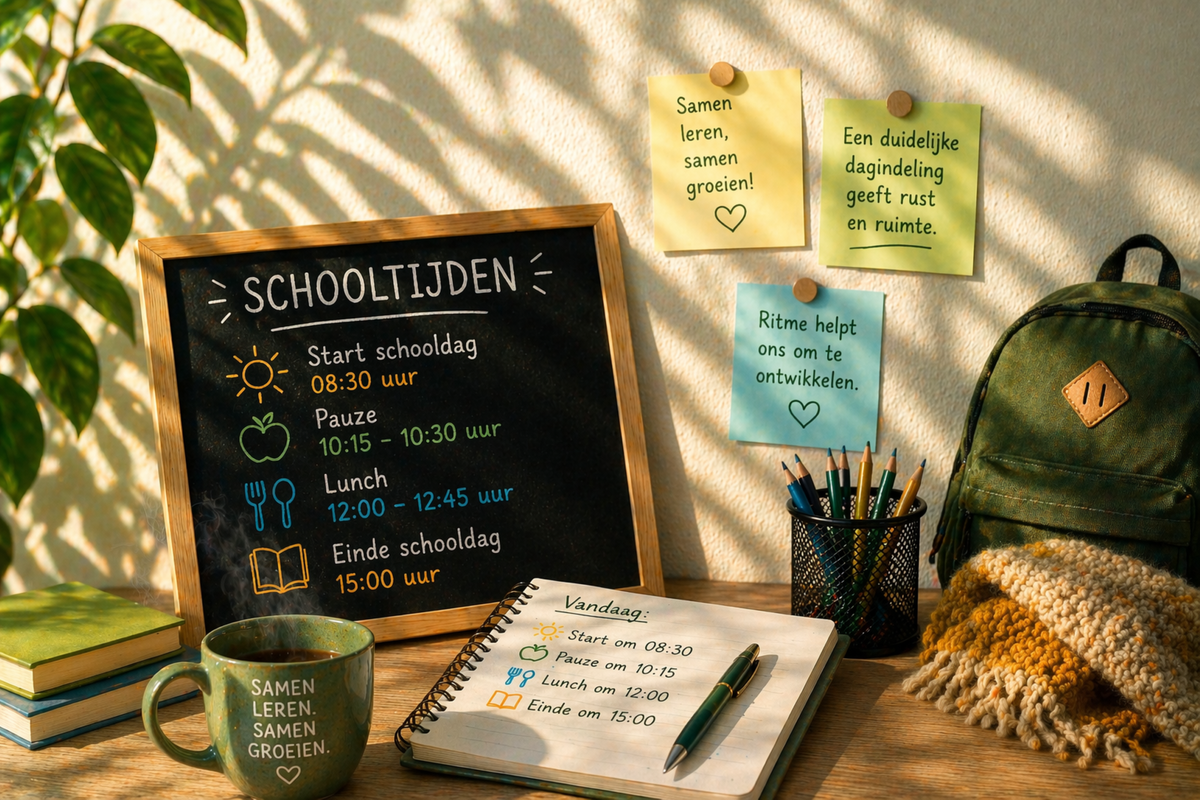 SCHOOLTIJDEN
Start schooldag
08:30 uur
Pauze
10:15 – 10:30 uur
Lunch
12:00 – 12:45 uur
Einde schooldag
15:00 uur
Samen
leren,
samen
groeien!
Een duidelijke
dagindeling
geeft rust
en ruimte.
Ritme helpt
ons om te
ontwikkelen.
SAMEN
LEREN.
SAMEN
GROEIEN.
Vandaag:
Start om 08:30
Pauze om 10:15
Lunch om 12:00
Einde om 15:00